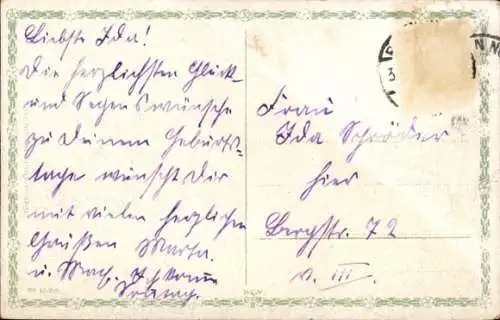 Liebste Ida!
Die herzlichsten Glück
und Segenswünsche
zu Deinem Geburts-
tage wünscht Dir
mit vielen herzlichen
Grüßen Marta.
u. Max.
Sonntag.
Frau
Ida Schröder
hier
Bergstr. 72
v. III.